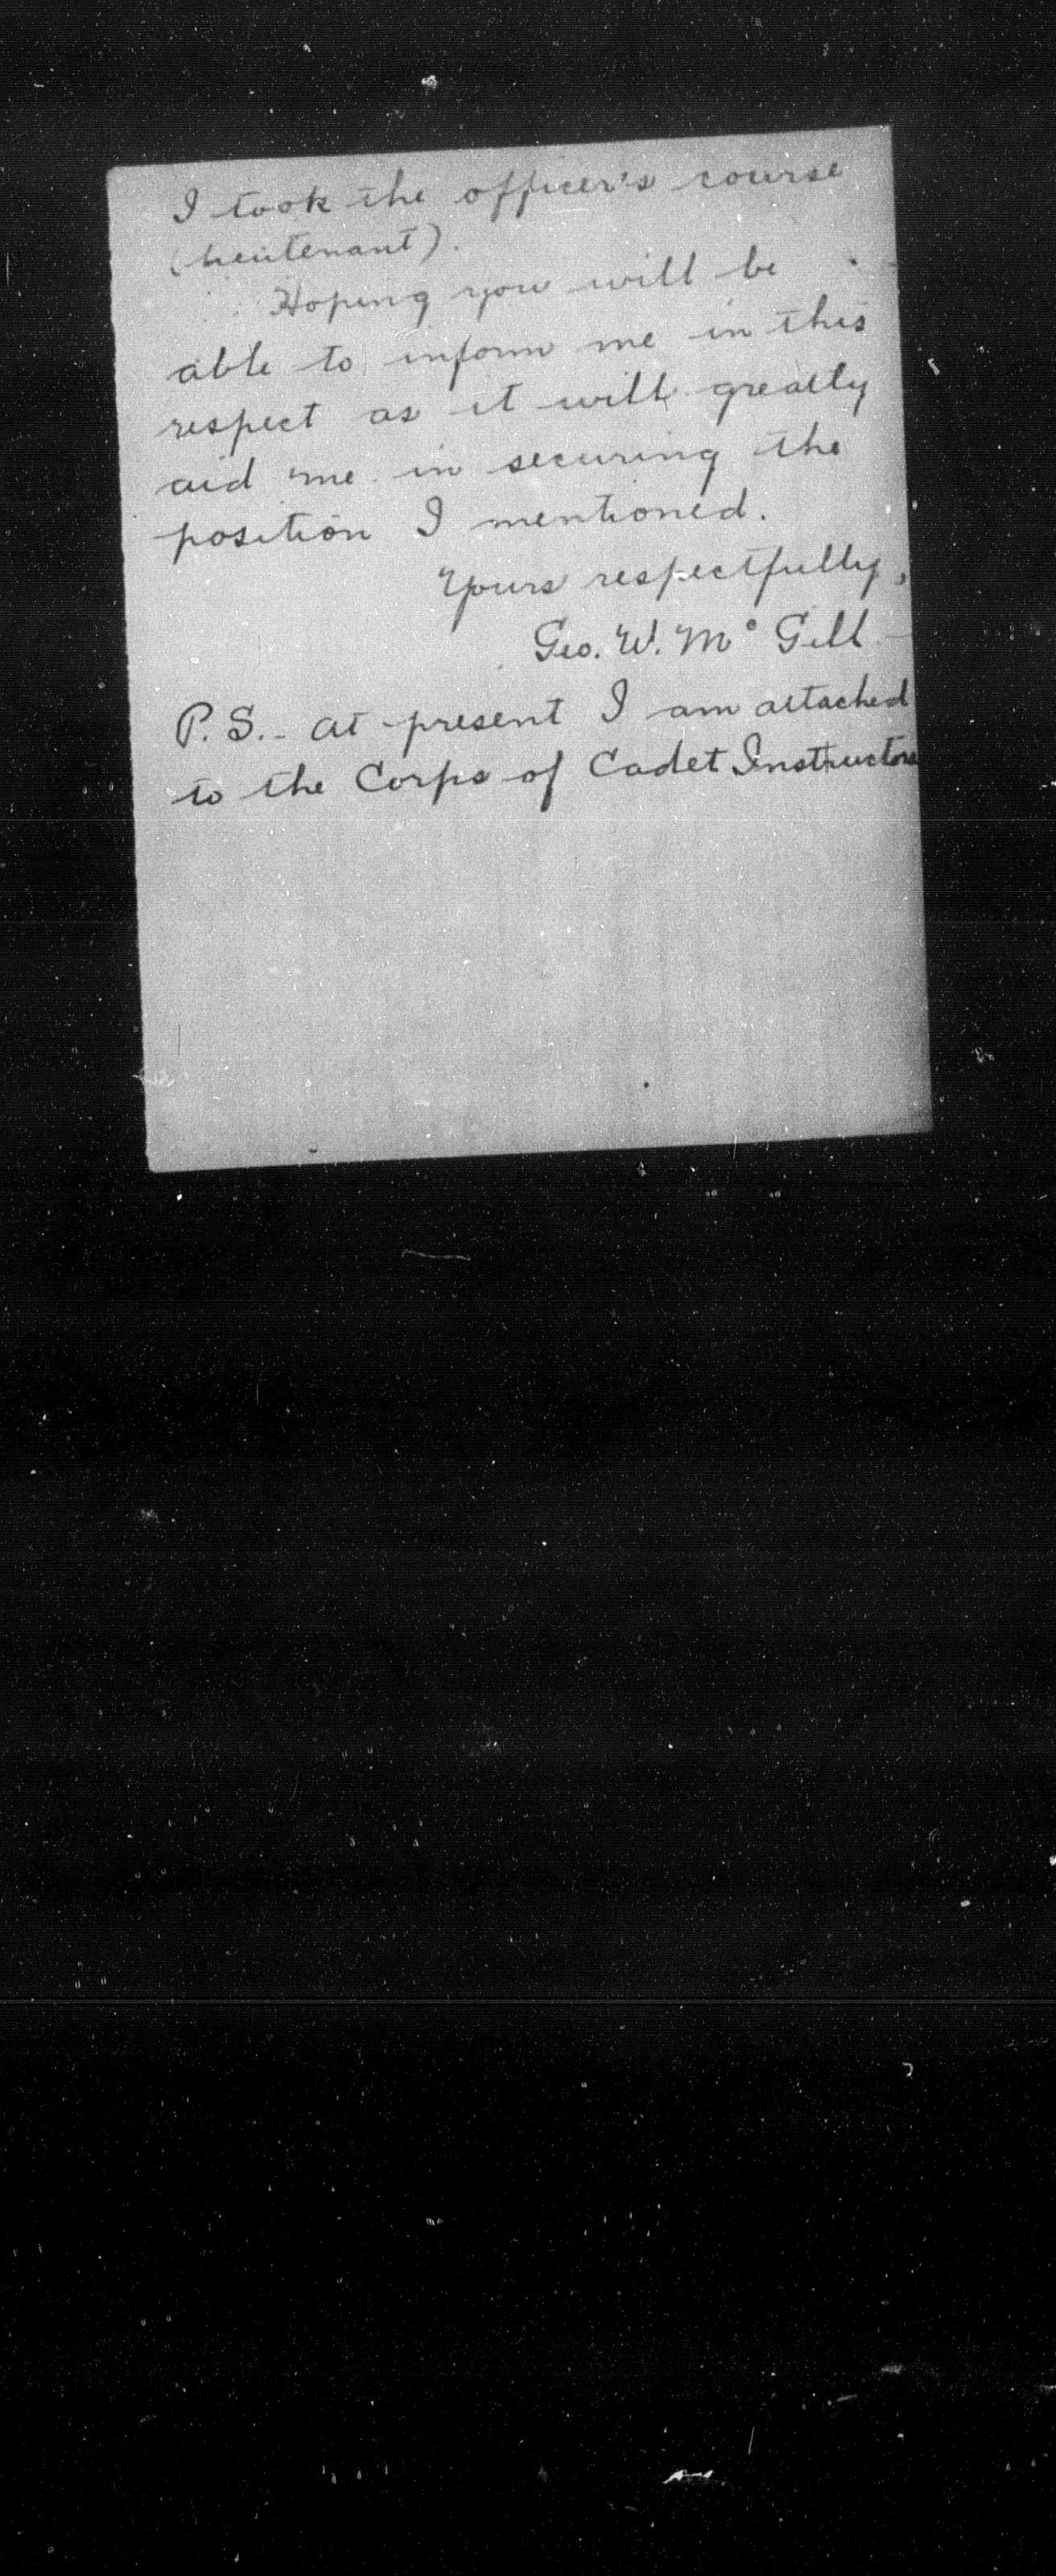 I took the officer's course
(lieutenant).
Hoping you will be
able to inform me in this
respect as it will greatly
aid me in securing the
position I mentioned.
Yours respectfully,
Geo. W. Mc Gill
P.S. - At present I am attached
to the Corps of Cadet Instructors